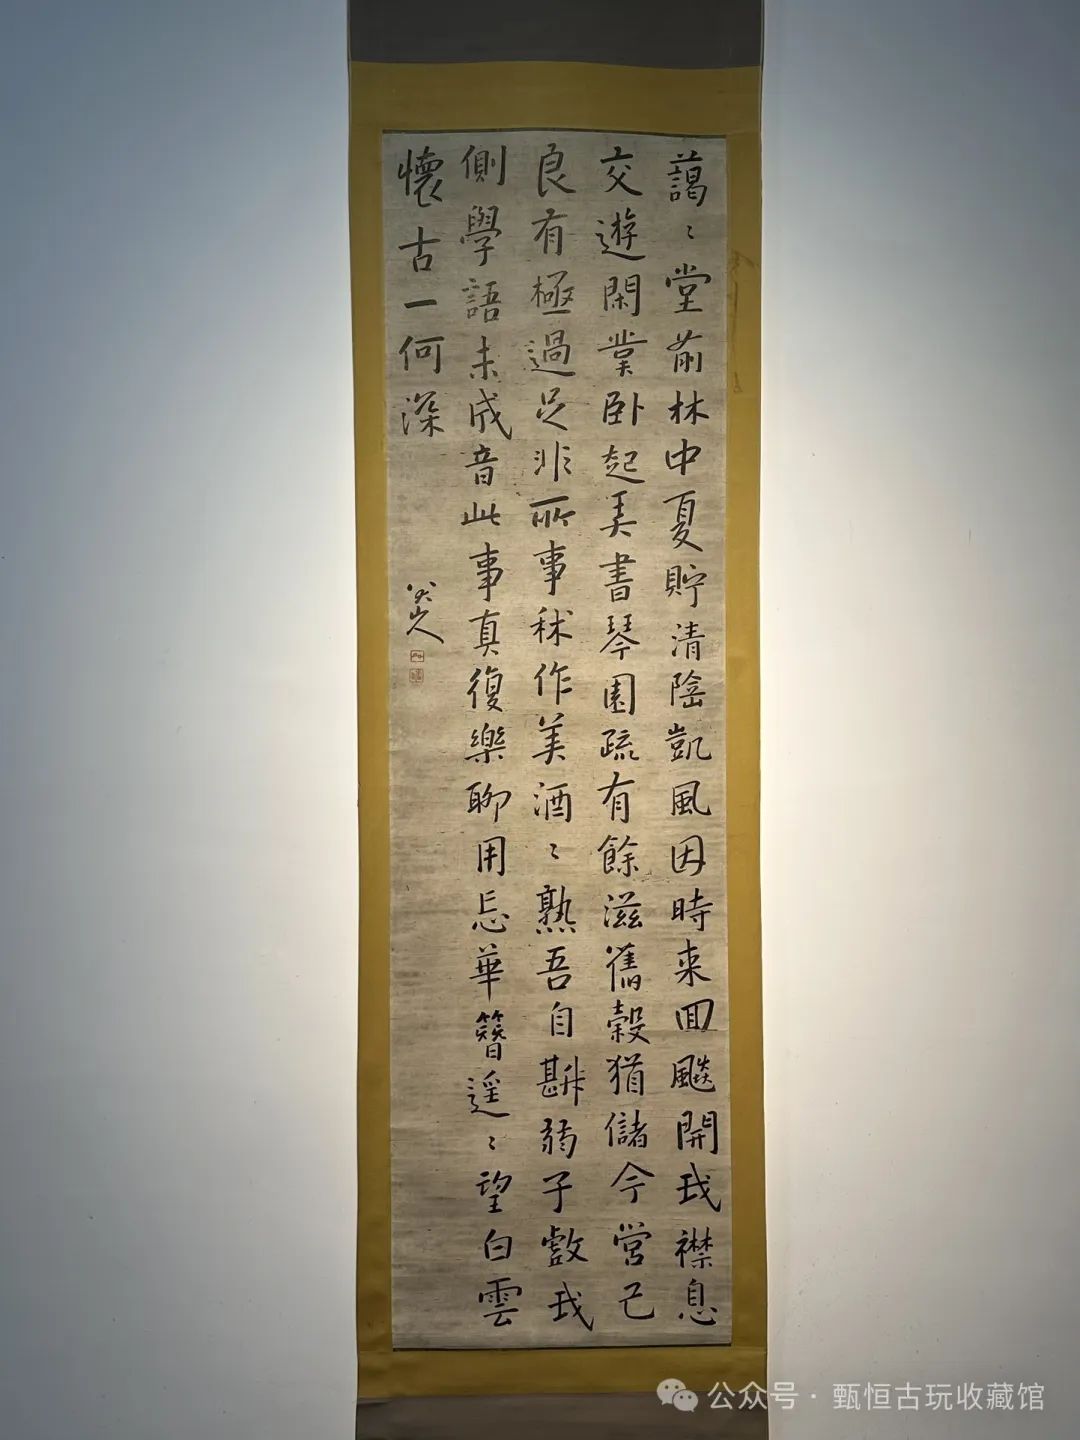 藹〻堂前林中夏貯清陰凱風因時来囬飈開我襟息
交遊閑業卧起美書琴園疏有餘滋舊穀猶儲今營己
良有極過足非所事秫作美酒〻熟吾自斟弱子戲我
側學語未成音此事真復樂聊用忘華簪遥〻望白雲
懷古一何深
八大山人
公众号 · 甄恒古玩收藏馆